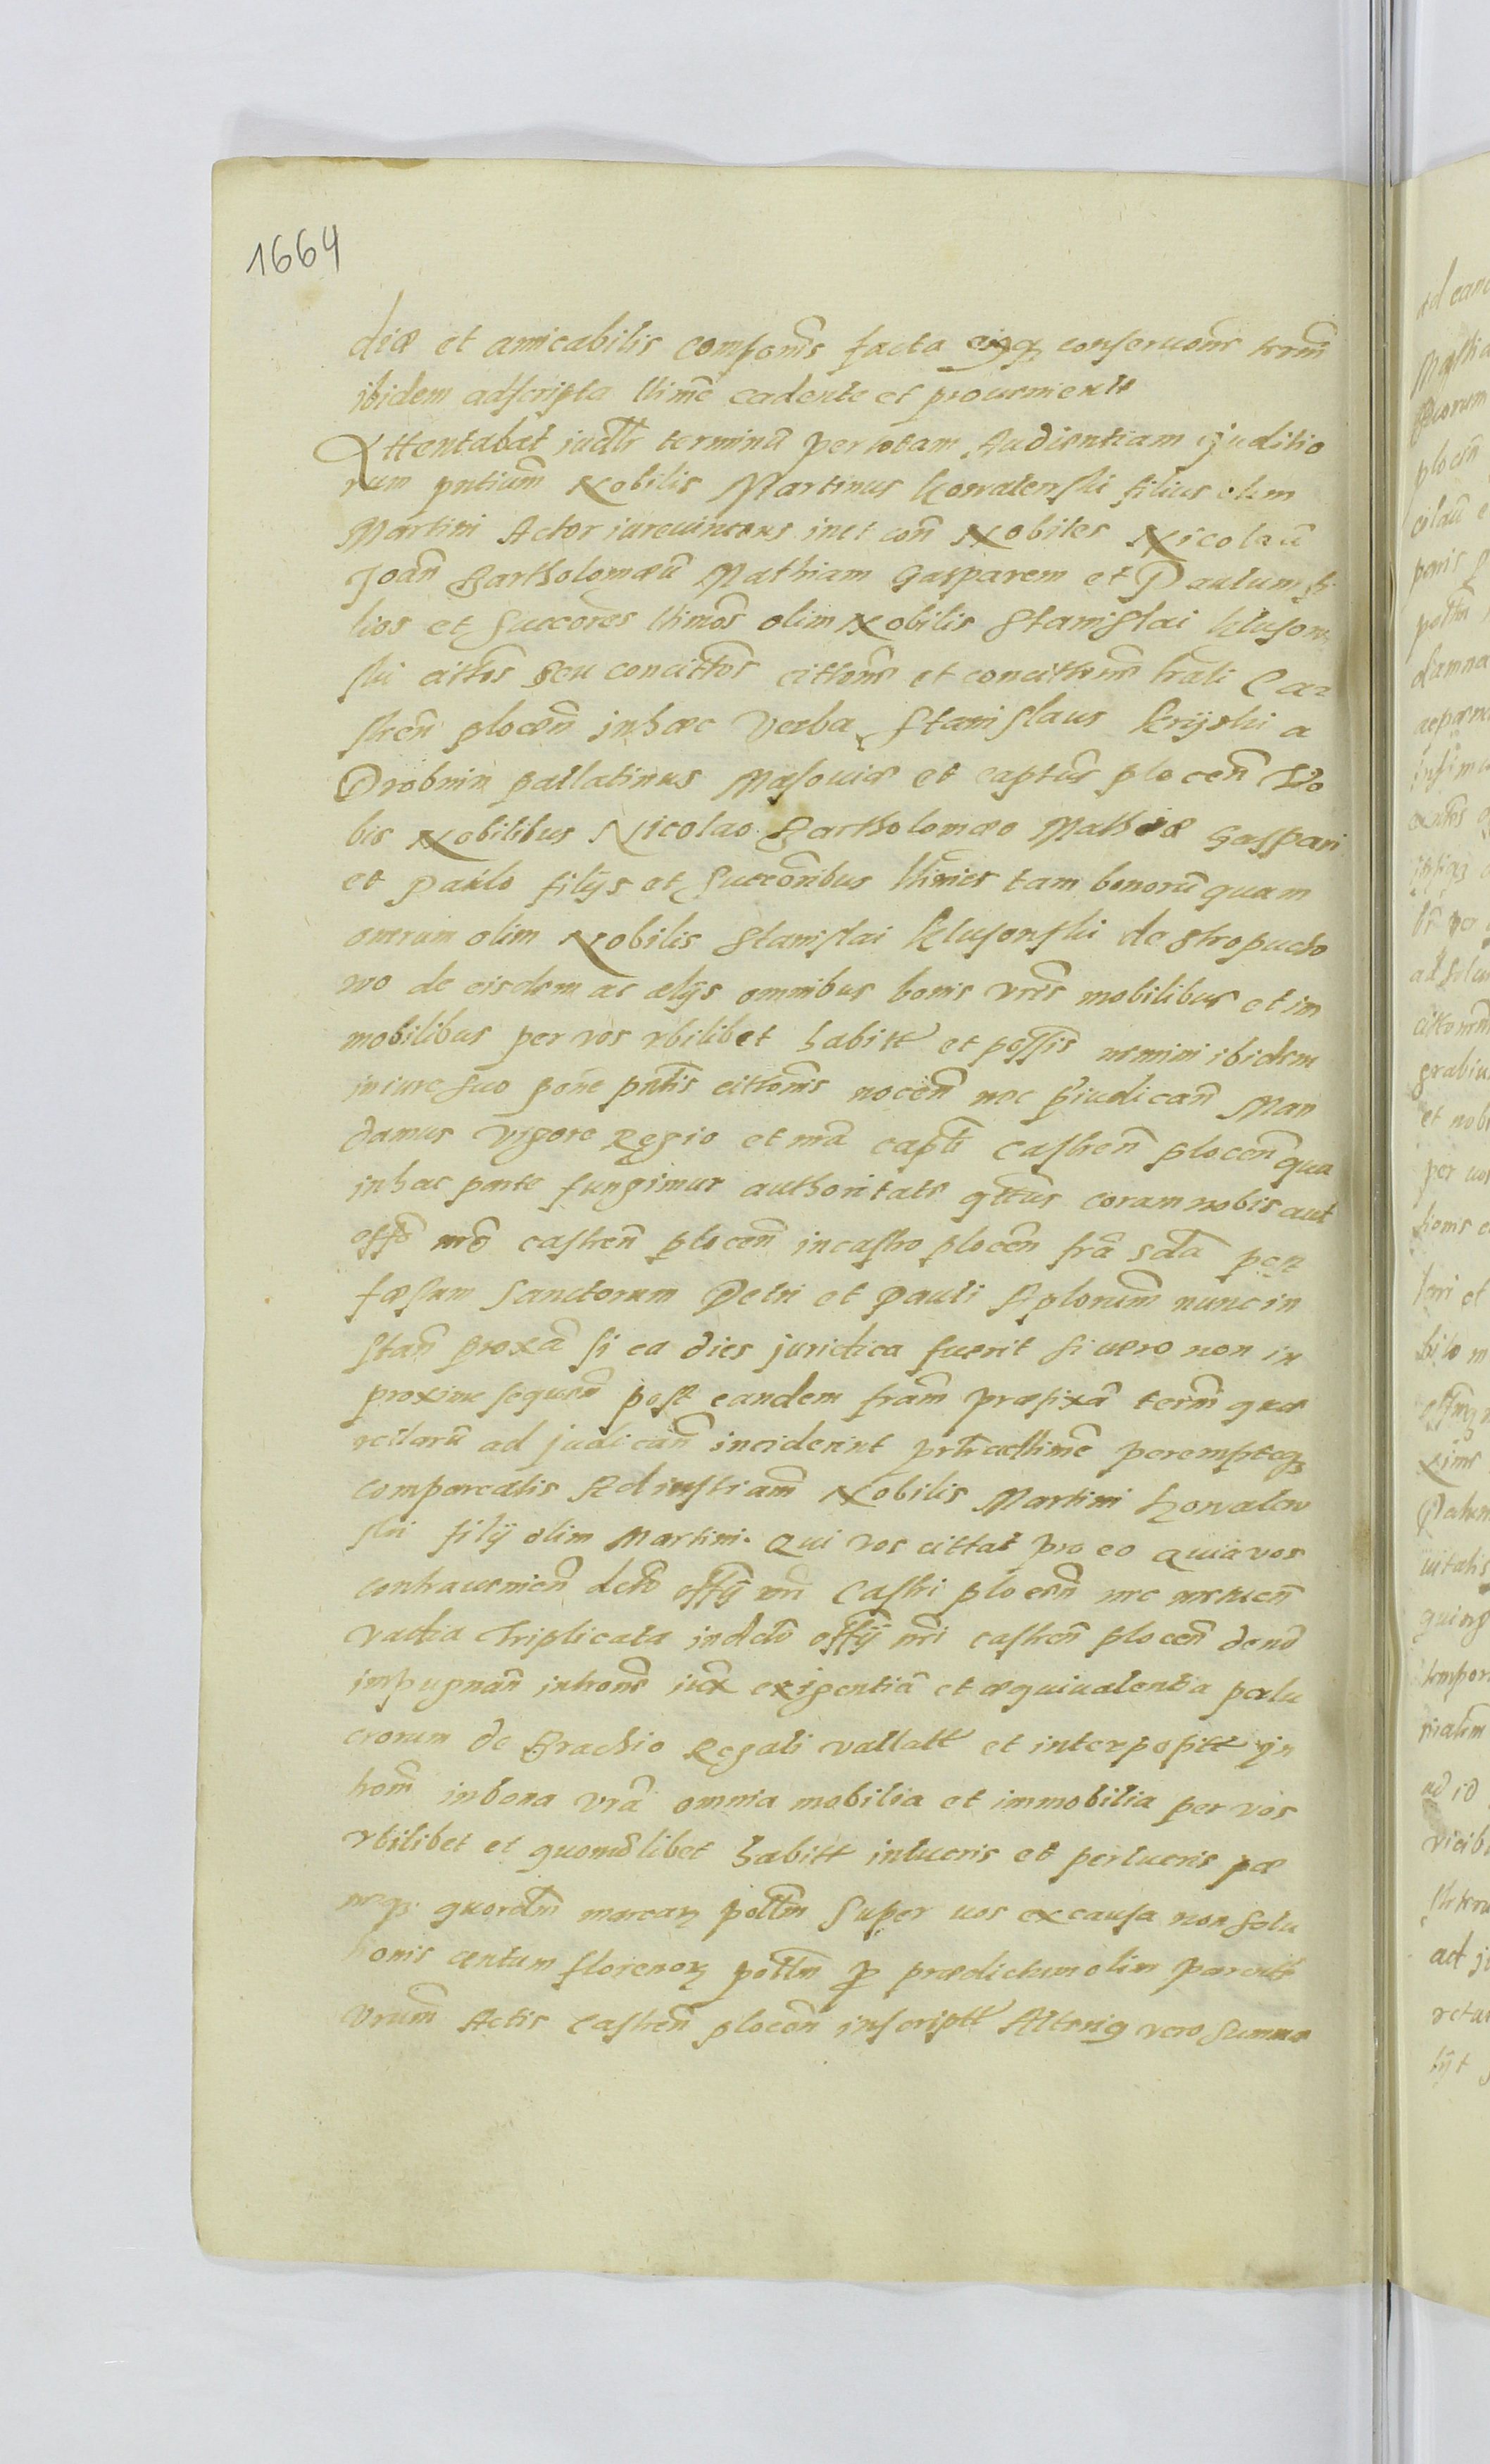 1664
diæ et amicabilis componis facta eiusq conservonis termi
ibidem adscripta llime cadente et proveniente
Attentabat judtr terminu per totam Audientiam Juditio
rum pntium Nobilis Martinus Kowalenski filius olim
Martini Actor iurevincens inct con Nobiles Nicolaũ
Joañ Bartholomæũ Mathiam Gasparem et Paulum fi
lios et Succores llimos olim Nobilis Stanislai Kluson
ski cittos seu concittos cittonis et concittonis trali Ca
stren plocen in hæc verba Stanislaus Kryski a
Drobnin pallatinus Masoviæ et captus plocen Vo
bis Nobilibus Nicolao Bartholomæo Mathiæ Gaspari
et Paulo filijs et Succoribus llimis tam bonorũ quam
onerum olim Nobilis Stanislai Klusonski de Stropucho
wo de eisdem ac alijs omnibus bonis vris mobilibus et im
mobilibus per vos vbilibet habitt et possis nemini ibidem
in iure suo pone pntis cittonis nocen nec piudican Man
damus vigore Regio et nra capti Castren plocen qua
in hac parte fungimur authoritate qttus coram nobis aut
offo nro castren plocen in castro plocen fra sda post
fæsum Sanctorum Petri et Pauli Aplorum nunc in
stan proxa si ea dies juridica fuerit si vero non in
proxime sequen post eandem fram præfixa termi quæ
relarũ ad judican inciderint prtr llime perempteq
compareatis Ad instiam Nobilis Martini Kowalen
ski filij olim Martini. Qui vos cittat pro eo quia vos
contravenien decto offij nri Castri plocen nec metuen
vadia triplicata in dcto offij nri castren plocen de no
impugnan introne iux exigentiã et æquivalentia perlu
crorum de Brachio Regali vallatt et interpositt in
trom in bona vra omnia mobilia et immobilia per vos
vbilibet et quomodlibet habitt in lucris et perlucris pæ
nisq quordm marcar pollm super vos ex causa non solu
tionis centum florenor pollm p prædictum olim parentem
vrum Actis Castren plocen inscriptt Alteriq vero summæ